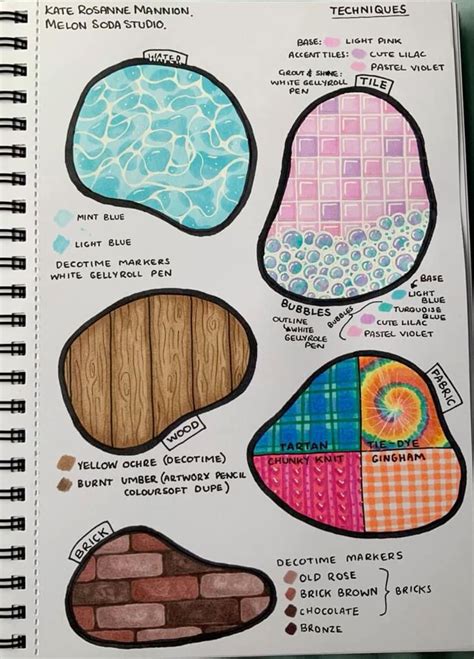 KATE ROSANNE MANNION.
MELON SODA STUDIO.
TECHNIQUES
BASE: LIGHT PINK
ACCENT TILES: CUTE LILAC
PASTEL VIOLET
GROUT & SHINE:
WHITE GELLYROLL
PEN
TILE
WATER
MINT BLUE
LIGHT BLUE
DECOTIME MARKERS
WHITE GELLYROLL PEN
BUBBLES
OUTLINE
WHITE
GELLYROLE
PEN
BUBBLES
BASE
LIGHT
BLUE
TURQUOISE
BLUE
CUTE LILAC
PASTEL VIOLET
WOOD
YELLOW OCHRE (DECOTIME)
BURNT UMBER (ARTWORX PENCIL
COLOURSOFT DUPE)
FABRIC
TARTAN
TIE-DYE
CHUNKY KNIT
GINGHAM
BRICK
DECOTIME MARKERS
OLD ROSE
BRICK BROWN
CHOCOLATE
BRICKS
BRONZE